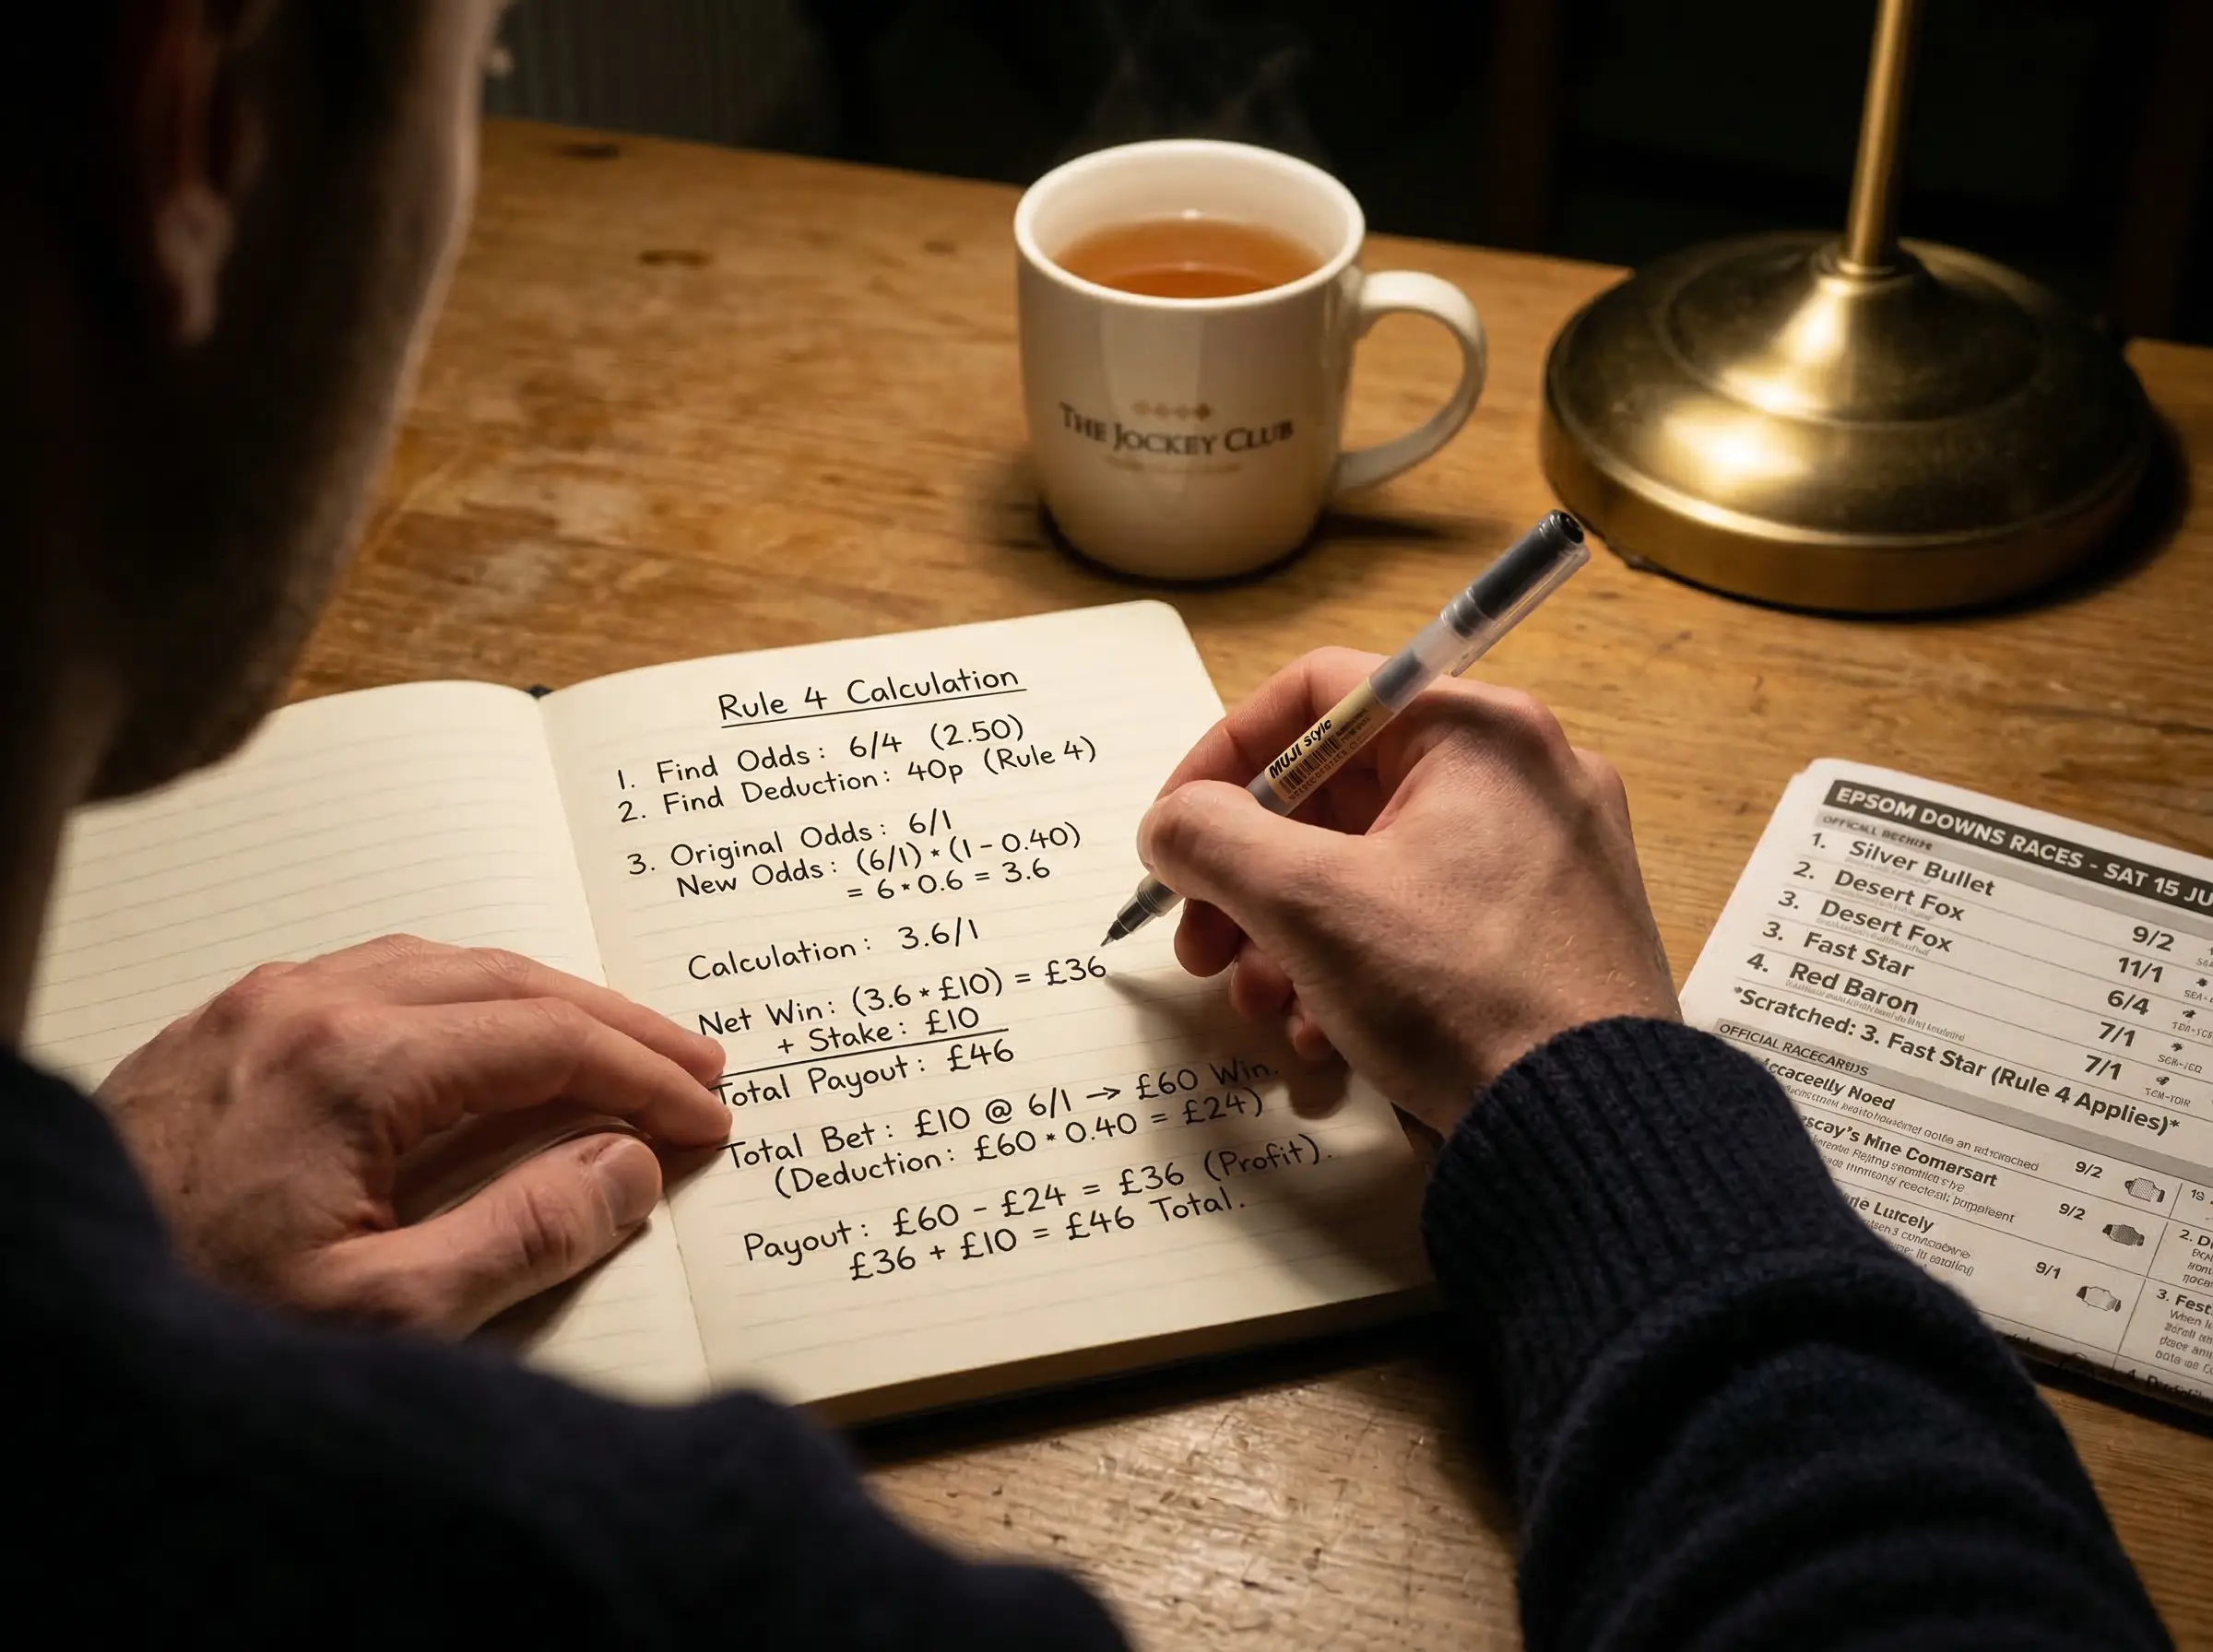 THE JOCKEY CLUB
MUJI style
Rule 4 Calculation
1. Find Odds: 6/4 (2.50)
2. Find Deduction: 40p (Rule 4)
3. Original Odds: 6/1
New Odds: (6/1) * (1 - 0.40)
= 6 * 0.6 = 3.6
Calculation: 3.6/1
Net Win: (3.6 * £10) = £36
+ Stake: £10
Total Payout: £46
Total Bet: £10 @ 6/1 → £60 Win.
(Deduction: £60 * 0.40 = £24)
Payout: £60 - £24 = £36 (Profit).
£36 + £10 = £46 Total.
EPSOM DOWNS RACES - SAT 15 JU
1. Silver Bullet 9/2
2. Desert Fox 11/1
3. Desert Fox 6/4
3. Fast Star 7/1
4. Red Baron 7/1
*Scratched: 3. Fast Star (Rule 4 Applies)*
OFFICIAL RACECARDS
ccaceelly Noed 9/2
scay's Mne Comersart 9/2
Lutcely 9/1
2. D
3. Fest
When